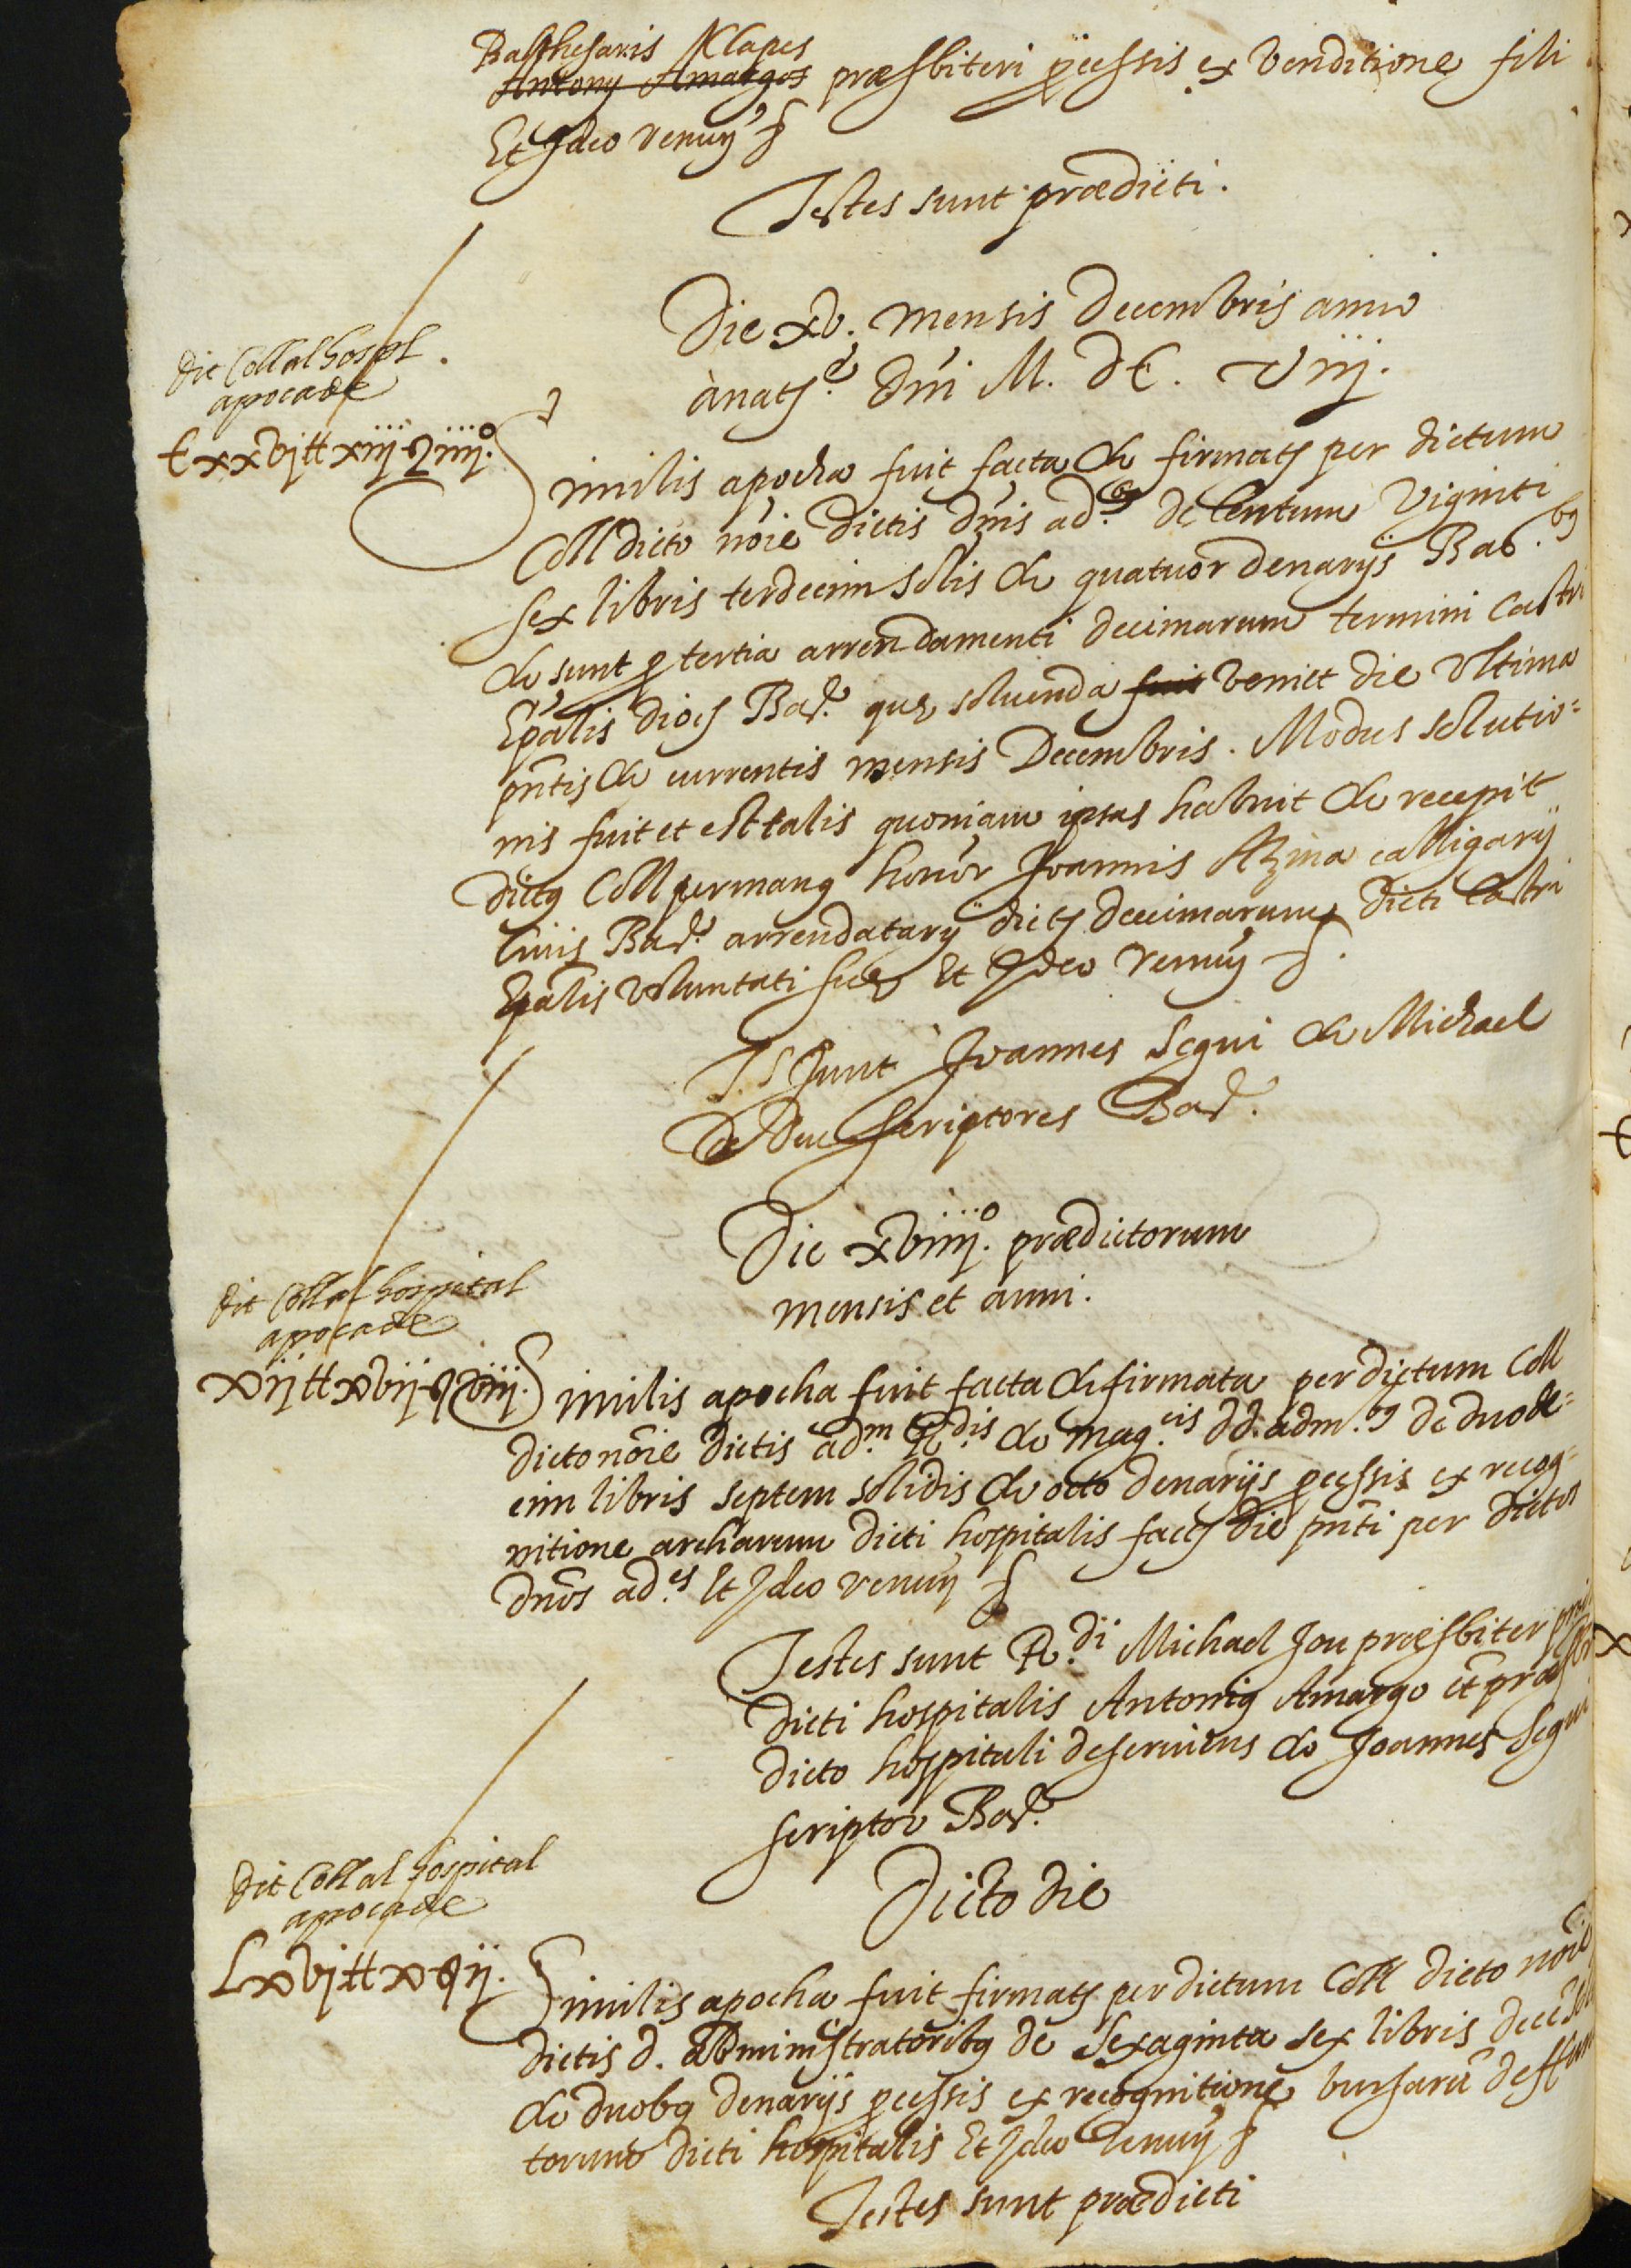 Balthesaris Klapes
Antony Amargos præsbiteri p̄cessis ex venditione fili
Et Ideo renuȳ &
Testes sunt prædicti.
Die xv. mensis decembris anno
à natṛ.e dñi M. DC. Viij.
dit Coll al hospl.
apoca de
Cxxvj ℔ xiij s iiij.º
Similis apocha fuit facta & firmatȝ per dictum
Coll dicto nōie dictis dñis ad.bȝ de Centum viginti
sex libris terdecim solis & quatuor denarijs Bar.bȝ
& sunt p̄ tertia arrendamenti decimarum termini castri
Epālis diocȝ Bar.e que soluenda fuit veniet die ultima
pñtis & currentis mensis Decembris. Modus solutio=
nis fuit et est talis quoniam ipsas habuit & recepit
dictȝ Coll per manȝ honor Joannis Azina calligarij
Civis Bar.e arrendatarij dictȝ decimarum dicti Castri
Epālis voluntati sue Et Ideo renuȳ &.
T.s sunt Joannes Segui & Michael
scriptores Bar.e
Die xviiij.º prædictorum
mensis et anni.
dit Coll al hospital
apoca de
xij ℔ xvij s viij.
Similis apocha fuit facta & firmata per dictum Coll
dicto nōie dictis ad.m R.dis & mag.cis dd. adm.bȝ de duode=
cim libris septem solidis & octo denarijs p̄cessis ex recog=
nitione archarum dicti hospitalis factȝ die pñti per dictos
dños ad.es Et Ideo renuȳ &
Testes sunt R.di Michael Jou præsbiter
dicti hospitalis Antoniȝ Amargo et præsbr
dicto hospitali deseruiens & Joannes Segui
scriptor Bar.e
Dicto die
dit Coll al hospital
apoca de
Lxvj ℔ x s ij.
Similis apocha fuit firmatȝ per dictum Coll dicto nōie
dictis d. administratoribȝ de sexaginta sex libris decē
& duobȝ denarijs p̄cessis ex recognitione bursarū
dicti hospitalis Et Ideo renuȳ &
Testes sunt prædicti